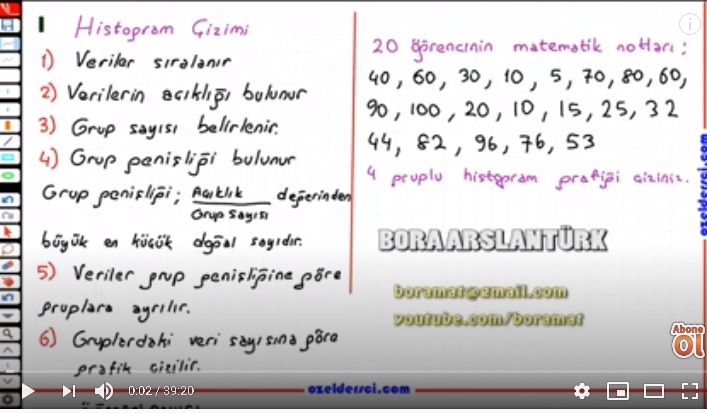 1 Histogram Çizimi
1) Veriler sıralanır
2) Verilerin açıklığı bulunur
3) Grup sayısı belirlenir.
4) Grup genişliği bulunur
Grup genişliği; Açıklık / Grup Sayısı değerinden
büyük en küçük dğoal sayıdır.
5) Veriler grup genişliğine göre
gruplara ayrılır.
6) Gruplardaki veri sayısına göre
grafik çizilir.
20 öğrencinin matematik notları;
40, 60, 30, 10, 5, 70, 80, 60,
90, 100, 20, 10, 15, 25, 32
44, 82, 96, 76, 53
4 gruplu histogram grafiği çiziniz.
BORA ARSLANTÜRK
boramat@gmail.com
youtube.com/boramat
Abone
Ol
0:02 / 39:20
ozelderrci.com